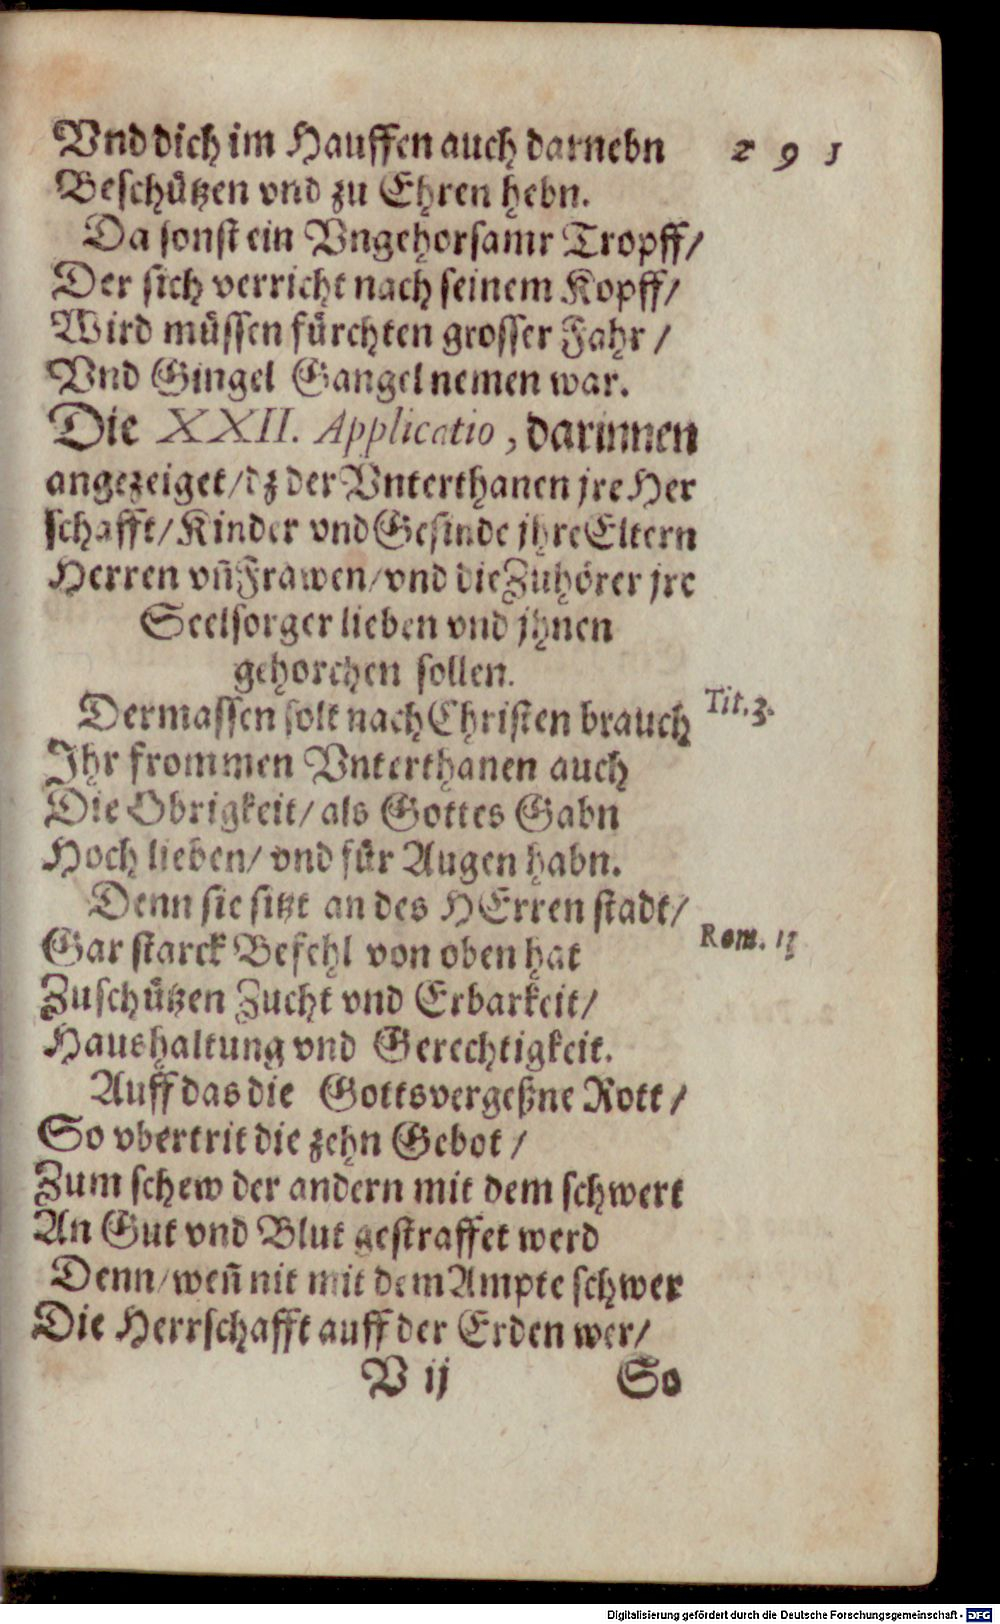 Vnd dich im Hauffen auch darnebn 291
Beschützen vnd zu Ehren hebn.
Da sonst ein Vngehorsamr Tropff/
Der sich verricht nach seinem Kopff/
Wird müssen fürchten grosser Fahr /
Vnd Gingel Gangel nemen war.
Die XXII. Applicatio, darinnen
angezeiget/dz der Vnterthanen jre Her
schafft/Kinder vnd Gesinde jhre Eltern
Herren vñ Frawen/vnd die Zuhörer jre
Seelsorger lieben vnd jhnen
gehorchen sollen.
Dermassen solt nach Christen brauch Tit. 3.
Ihr frommen Vnterthanen auch
Die Obrigkeit/ als Gottes Gabn
Hoch lieben/ vnd für Augen habn.
Denn sie sitzt an des HErren stadt/
Gar starck Befehl von oben hat Rom. 13
Zuschützen Zucht vnd Erbarkeit/
Haushaltung vnd Gerechtigkeit.
Auff das die Gottsvergeßne Rott /
So vbertrit die zehn Gebot /
Zum schew der andern mit dem schwert
An Gut vnd Blut gestraffet werd
Denn/weñ nit mit dem Ampte schwer
Die Herrschafft auff der Erden wer/
V ij So
Digitalisierung gefördert durch die Deutsche Forschungsgemeinschaft - DFG